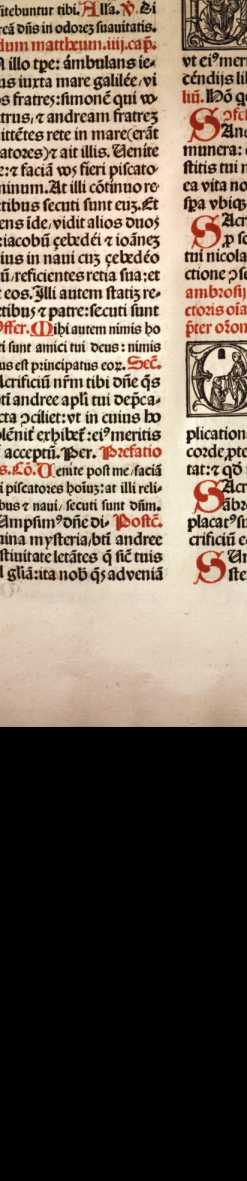 fitebuntur tibi. Alla. ℣. Di
rea dñs in odorez suauitatis.
dum mattheum.iiij.cap̃.
N illo tp̃e: ambulans ie-
us iuxta mare galilee/vi
s fratres:simonē qui vo-
trus,⁊ andream fratrez
ittētes rete in mare(erāt
atores)⁊ ait illis. Uenite
e:⁊ faciā vos fieri piscato-
minum.At illi cōtinuo re-
tibus secuti sunt euz.Et
ens īde,vidit alios duos
iacobū zebedei ⁊ ioānez
ius in naui cuz zebedeo
ū,reficientes retia sua:et
t eos.Illi autem statiz re-
tibuz ⁊ patre:secuti sunt
Offer. Mihi autem nimis ho
ti sunt amici tui deus: nimis
us est principatus eoꝝ. Sec̄.
Acrificiū nr̄m tibi dñe q̄s
ti andree apl̓i tui dep̄ca-
cta ꝯciliet:vt in cuius ho
lēnit̓ exhibet̓:eiꝰ meritis
acceptū. Per. Prefatio
s. Cō. Uenite post me/faciā
i piscatores hoīuz:at illi reli-
bus ⁊ naui/ secuti sunt dñm.
Umpsimꝰ dñe di- Postc̄.
mina mysteria/bt̄i andree
stiuitate letātes q̄ sic̄ tuis
d gl̓iā:ita nob̓ q̄s adveniā
vt eiꝰ meri
cēndijs li
liū. Hō q
Offici
Anc
munera:
stitis tui n
ea vita no
sp̃a vbiq̧
Acra
ꝓ s
tui nicola
ctione ꝯse
ambrosij
ctoris oīa
p̄ter oīon
plication
corde,pte
tat:⁊ qd̓
Acr
ābro
placatꝰ su
crificiū e
Um
ste